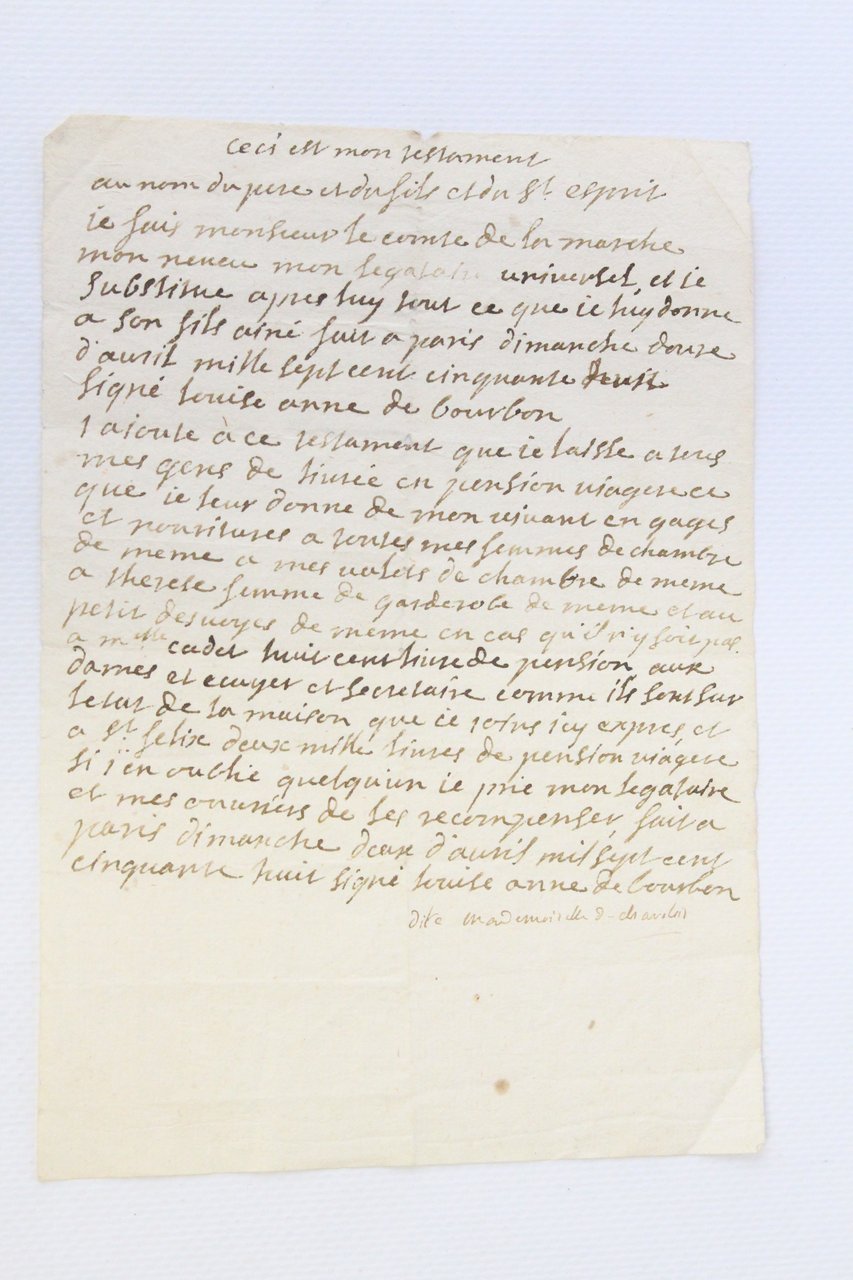 ceci est mon testament
au nom du pere et du fils et du St esprit
je fais monsieur le comte de la marche
mon neveu mon legataire universel et je
substitue apres luy tout ce que je luy donne
a son fils ainé fait a paris dimanche douze
d'avril mille sept cent cinquante
signé louise anne de bourbon
j ajoute à ce testament que je laisse a tous
mes gens de livrée en pension viagere ce
que je leur donne de mon vivant en gages
et nouritures a toutes mes femmes de chambre
de meme a mes valets de chambre de meme
a therese femme de garderobe de meme et au
petit desnoyes de meme en cas qu'il n'y soit pas
a melle cadet huit cent livre de pension aux
dames et ecuyer et secretaire comme ils sont sur
letat de la maison que je joins icy expres et
a st felix deux mille livres de pension viagere
si j'en oublie quelqu'un je prie mon legataire
et mes de les recompenser fait a
paris dimanche deux d'avril mil sept cent
cinquante huit signé louise anne de bourbon
dite mademoiselle de charolois